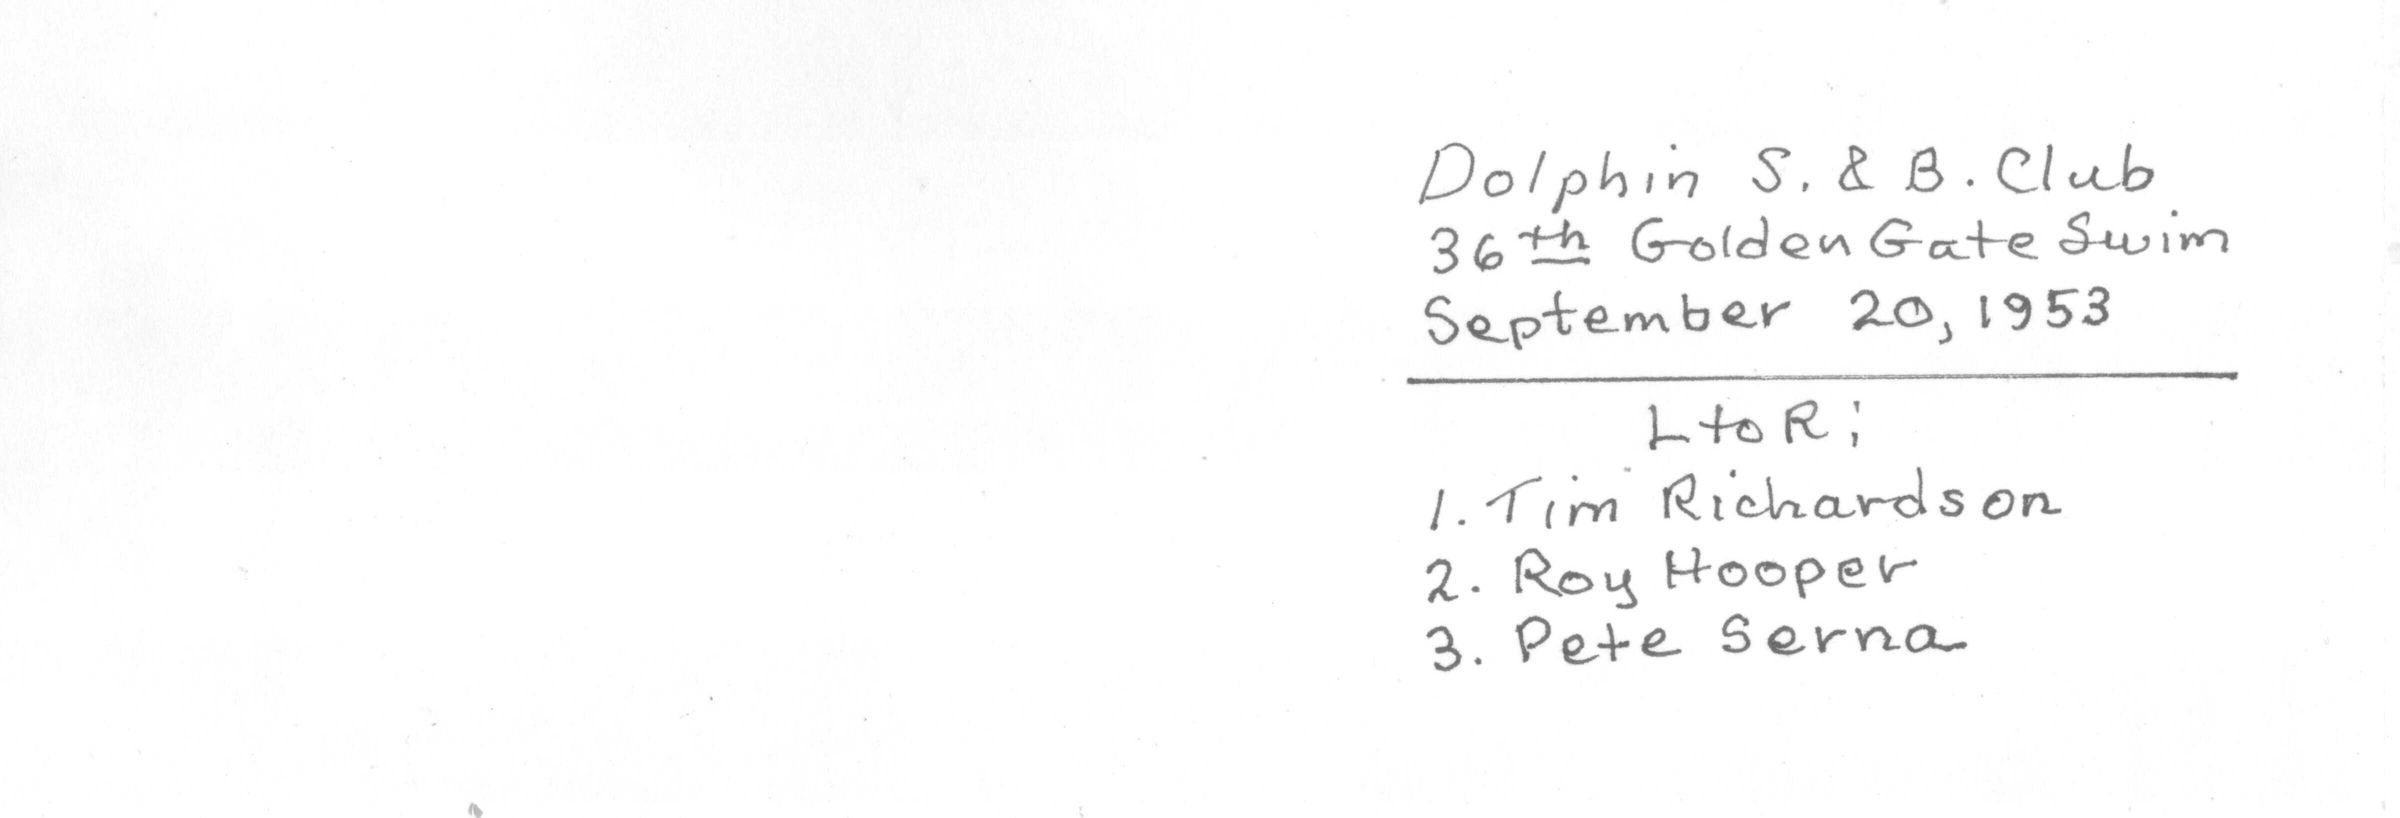 Dolphin S. & B. Club
36th Golden Gate Swim
September 20, 1953
L to R:
1. Tim Richardson
2. Roy Hooper
3. Pete Serna